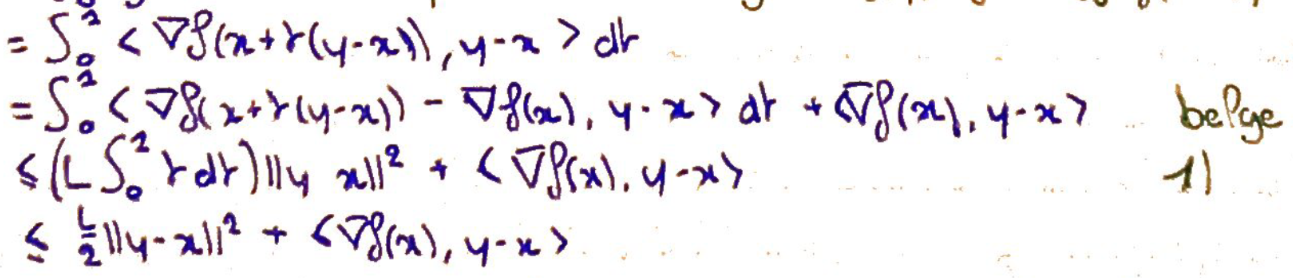 = ∫₀¹ < ∇f(x+t(y-x)), y-x > dt
= ∫₀¹ < ∇f(x+t(y-x)) - ∇f(x), y-x > dt + <∇f(x), y-x>
≤ (L ∫₀¹ t dt) ||y x||² + < ∇f(x), y-x>
1)
≤ L/2 ||y-x||² + <∇f(x), y-x>